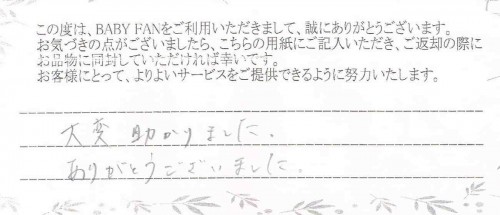 この度は、BABY FANをご利用いただきまして、誠にありがとうございます。
お気づきの点がございましたら、こちらの用紙にご記入いただき、ご返却の際に
お品物に同封していただければ幸いです。
お客様にとって、よりよいサービスをご提供できるように努力いたします。
大変 助かりました。
ありがとうございました。